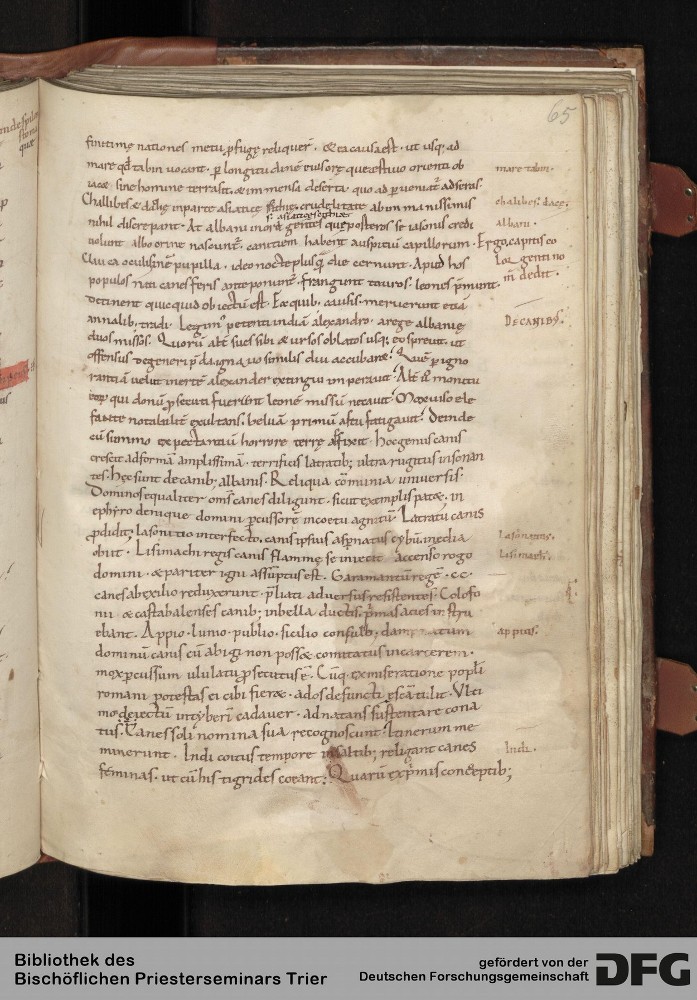 65
finitimę nationes metu ꝑfugę reliquer̄. & ea causa est. ut usq; ad
mare qd̄ tabin uocant. ꝑ longitudinē eiusorę quę ęstiuo orienti ob
iacę. sine homine terrasit. & inmensa deserta. quo ad ꝑueniat̄ ad seras.
Chalibes & dahę inparte asiaticę scithię. crudelitate ab inmanissimis
nihil discrepant. At albani inora gentes qui posteros se iasonis credi
uolunt. albo crine nascunt̄. canitiem habent auspitiū capillorum. Ergo capitis co
populos nati canes feris anteponunt̄. frangunt tauros. leones p̄munt.
detinent quicquid obiectū est. Ex quib; causis meruerunt etiā
annalib; tradi. Legim' petenti indiā alexandro. a rege albanię
duos missos. Quorū alt̄ sues sibi & ursos oblatos usq; eo spreuit. ut
offensus degeneri p̄da ignauo similis diu accubaret. Quē ꝑ igno
rantiā uelut inertē alexander extingui imperauit. Alt̄ monitu
eorum qui donū ꝓsecuti fuerunt leonē missū necauit. Mox uiso ele
fante notabilit̄ exultans. beluā primū astu fatigauit. Deinde
cū summo expectantiū horrore terrę afflixit. Hoc genus canis
crescit ad formā amplissimā. terrificis latratib; ultra rugitus insonan
tes. Hęc sunt de canib; albanis. Reliqua cōmunia uniuersis.
Dominos equaliter oms̄ canes diligunt. sicut exemplis pat&. in
ephyro denique domini ꝑcussorē incoetu agnitū. Latratu canis
ꝓdidit. Iasoni licio interfecto. canis ipsius aspnatus cybū. inedia
obiit. Lisimachi regis canis flammę se iniecit accenso rogo
domini. & pariter igni assūptus est. Garamantiū regē. cc.
canes ab exilio reduxerunt. p̄liati aduersus resistentes. Colofo
nii & castabalenses canib; in bella ductis. p̄mas acies instru
ebant. Appio. Iunio. publio. sicilio consulib; damnatum
dominū canis cū abigi non poss& comitatus in carcerem.
mox ꝑcussum ululatu ꝓsecutus ē. Cūq; ex miseratione popl̄i
romani potestas ei cibi fier&. ad os defuncti escā tulit. Ulti
mo deiectū in tyberī cadauer. adnatans sustentare cona
tus. Canes soli nomina sua recognoscunt. Itinerum me
minerunt. Indi coitus tempore in saltib; religant canes
feminas. ut cū his tigrides coeant; Quarū ex p̄mis conceptib;
mare tabin.
chalibes. dacę.
albani.
in dedit.
DE CANIBUS.
Iasonius.
Lisimach.
appius.
Indi.
Bibliothek des
Bischöflichen Priesterseminars Trier
gefördert von der
Deutschen Forschungsgemeinschaft
DFG